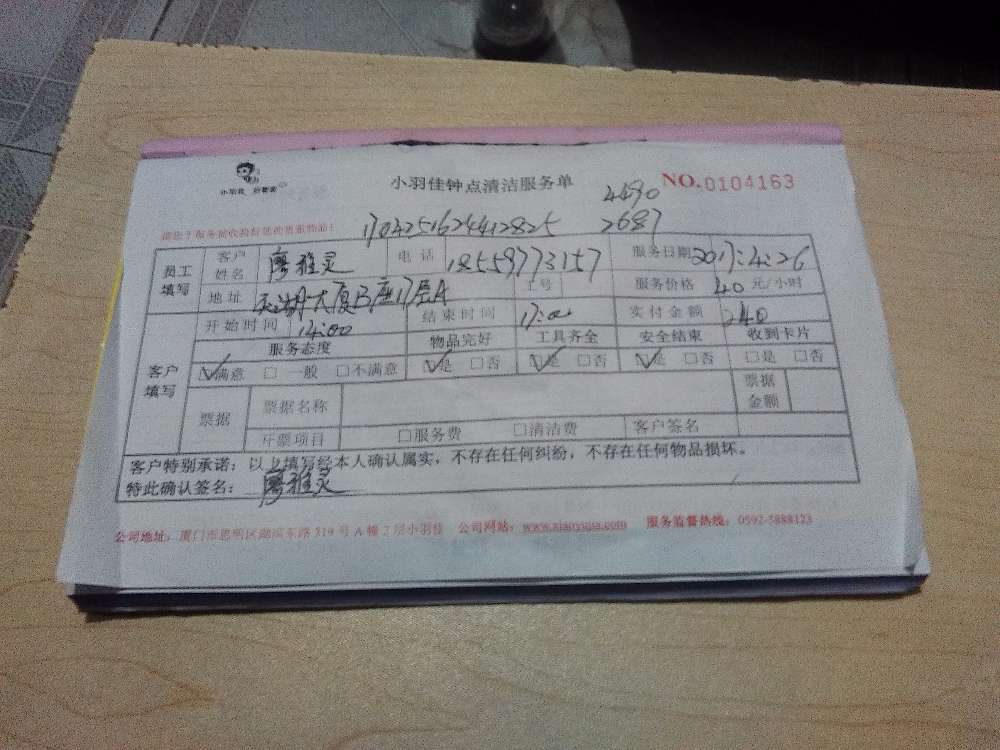 小羽佳钟点清洁服务单 NO.0104163
4490
1704251624412825 2687
客户姓名 廖雅灵 电话 18559773157 服务日期 2017.4.26
员工填写
地址 湖大厦B座17层A 工号 服务价格 40 元/小时
开始时间 14:00 结束时间 17:00 实付金额 240
服务态度 物品完好 工具齐全 安全结束 收到卡片
客户填写
☑满意 □一般 □不满意 ☑是 □否 ☑是 □否 ☑是 □否 □是 □否
票据 票据名称 票据金额
开票项目 □服务费 □清洁费 客户签名
客户特别承诺：以上填写经本人确认属实，不存在任何纠纷，不存在任何物品损坏。
特此确认签名：廖雅灵
公司地址：厦门市思明区湖滨东路319号A幢2层小羽佳 公司网站： 服务监督热线：0592-5888123